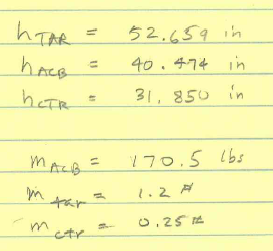 hTAR = 52.659 in
hACB = 40.474 in
hCTR = 31.850 in
mACB = 170.5 lbs
mtar = 1.2 #
mctr = 0.25 #